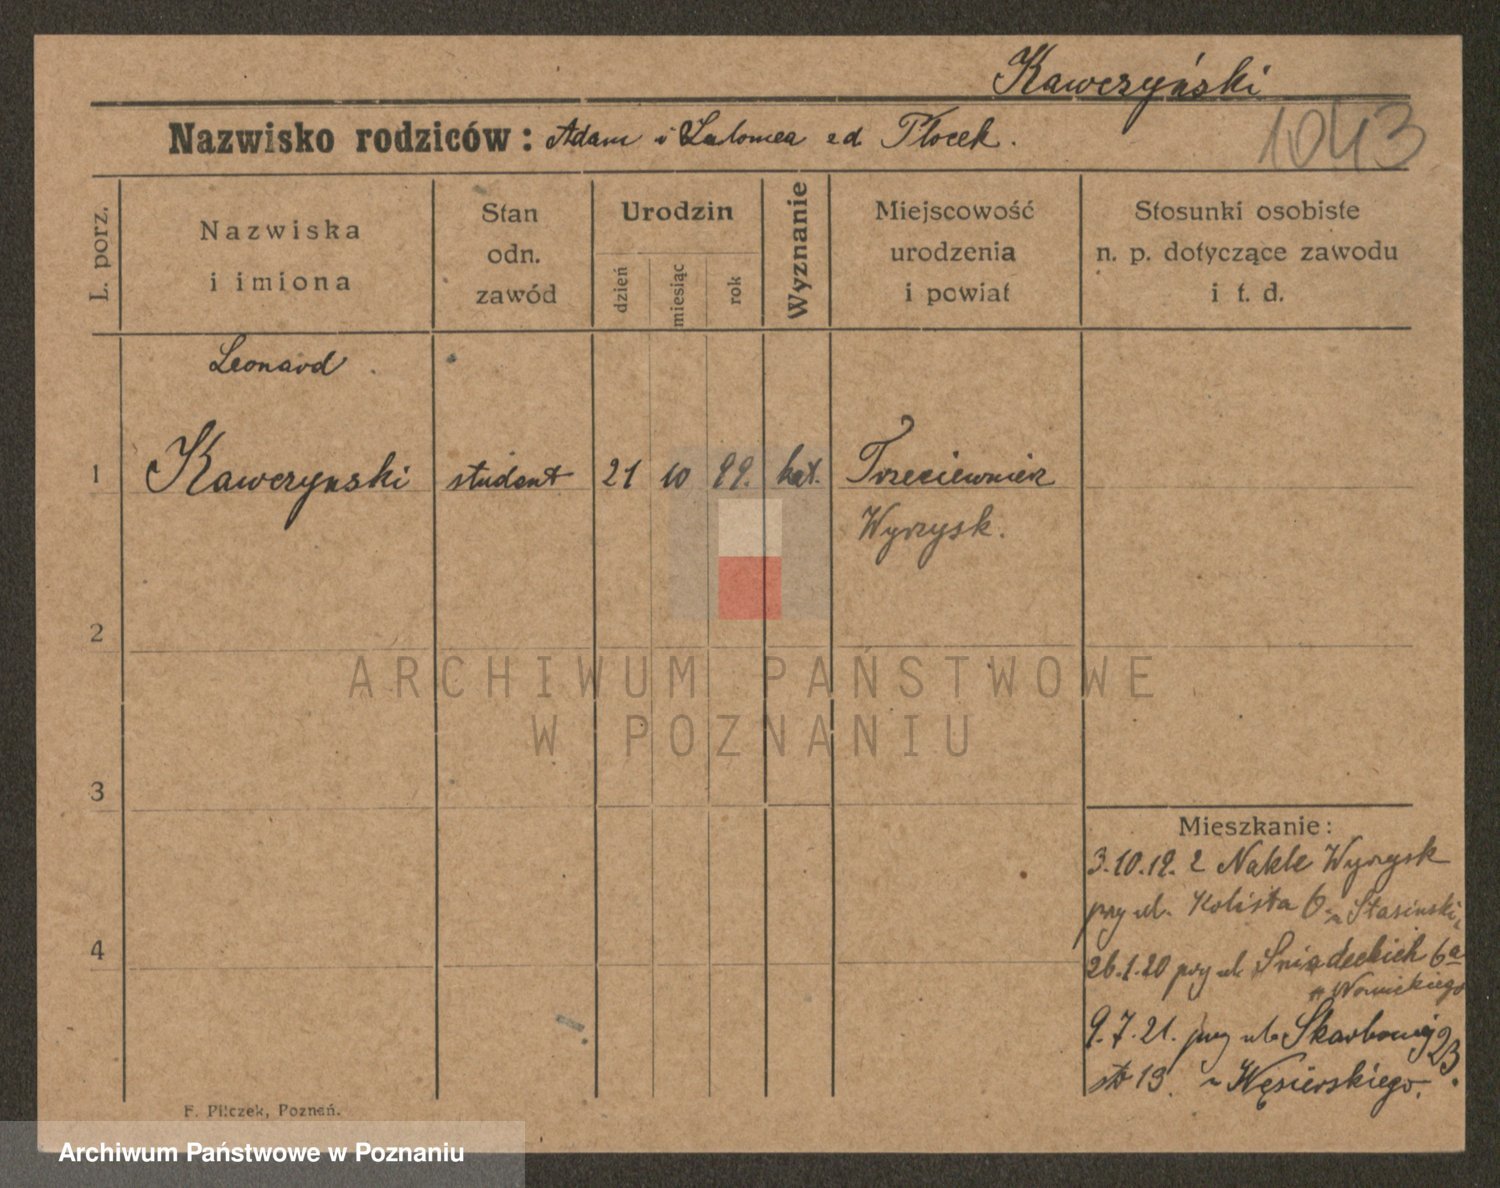 Kawczyński
Nazwisko rodziców: Adam i Salomea zd Płocek.
1043
L. porz.
Nazwiska
i imiona
Stan
odn.
zawód
Urodzin
dzień
miesiąc
rok
Wyznanie
Miejscowość
urodzenia
i powiat
Stosunki osobiste
n. p. dotyczące zawodu
i t. d.
Leonard
1 Kawczynski student 21 10 99. kat. Trzeciewnica
Wyrzysk.
2
ARCHIWUM PAŃSTWOWE
W POZNANIU
3
Mieszkanie:
3.10.19. z Nakle Wyrzysk
przy ul. 6 Stasinski
4
26.1.20 przy ul Śniadeckich 6a
Nowickiego
9.7.21. przy ul. Skarbowej 23.
19. Węsierskiego.
F. Pilczek, Poznań.
Archiwum Państwowe w Poznaniu